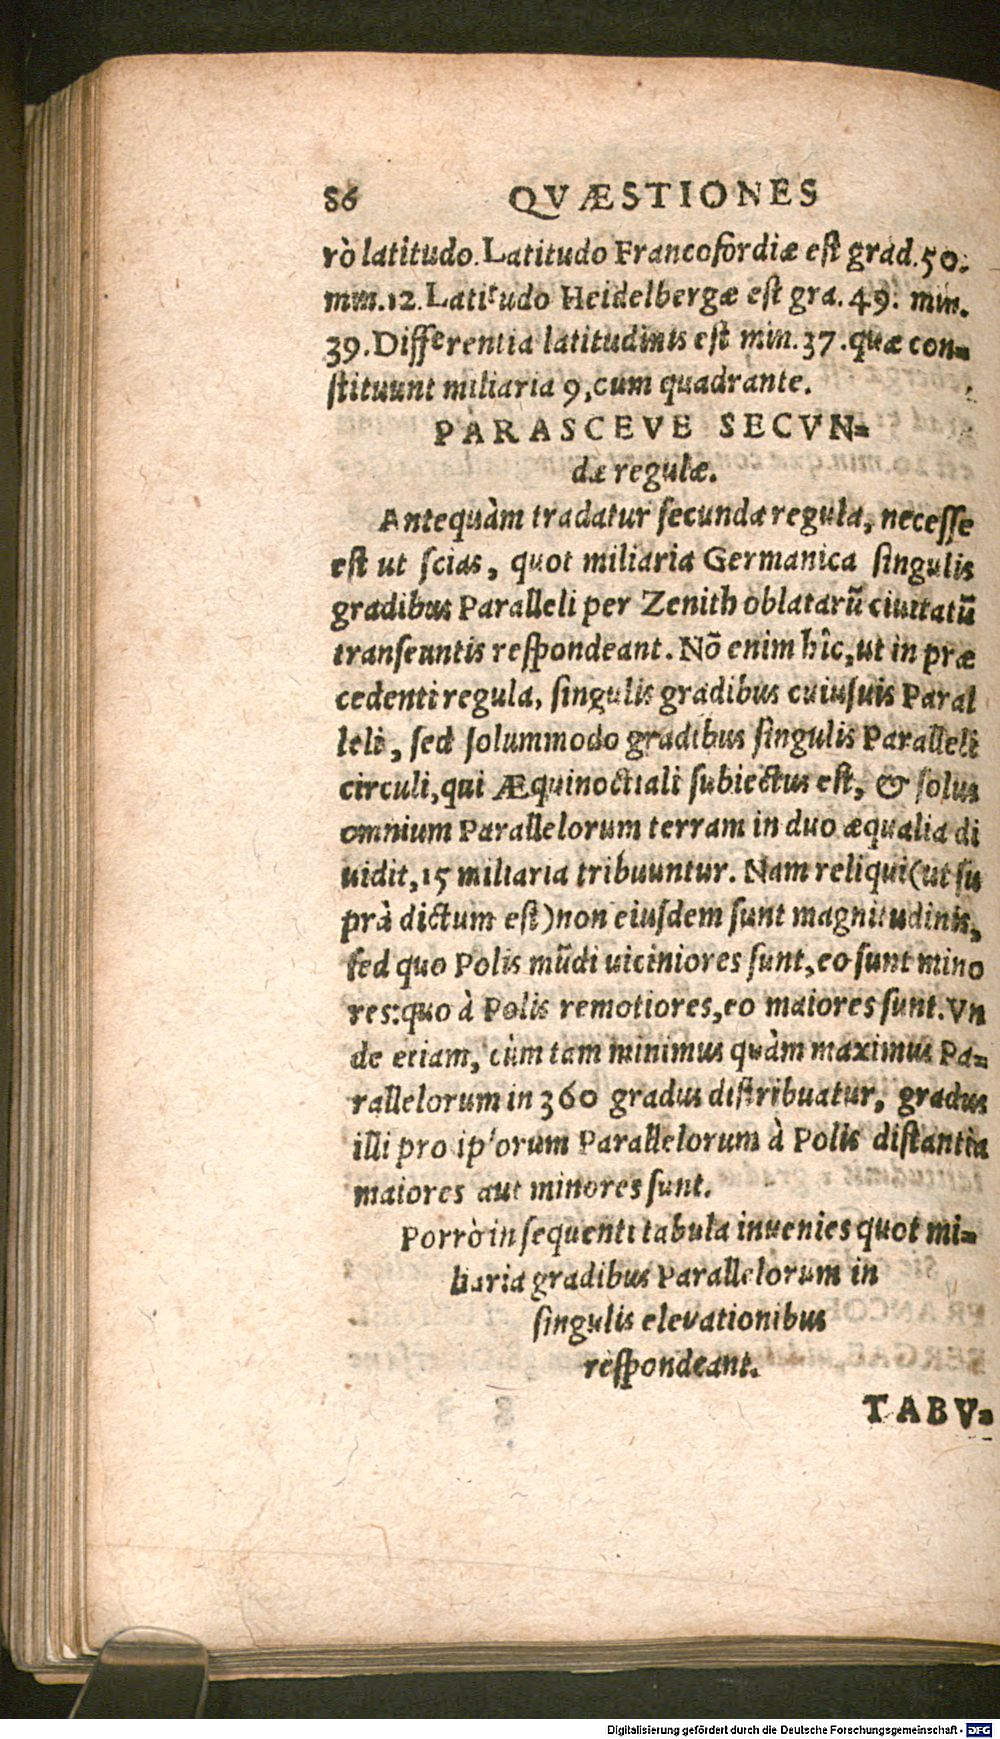 86 QVÆSTIONES
rò latitudo. Latitudo Francofordiæ est grad. 50.
min. 12. Latitudo Heidelbergæ est gra. 49. min.
39. Differentia latitudinis est min. 37. quæ con=
stituunt miliaria 9, cum quadrante.
PARASCEVE SECVN=
dæ regulæ.
Antequàm tradatur secunda regula, necesse
est ut scias, quot miliaria Germanica singulis
gradibus Paralleli per Zenith oblatarũ ciuitatũ
transeuntis respondeant. Nõ enim hîc, ut in præ
cedenti regula, singulis gradibus cuiusuis Paral
leli, sed solummodo gradibus singulis Paralleli
circuli, qui Æquinoctiali subiectus est, & solus
omnium Parallelorum terram in duo æqualia di
uidit, 15 miliaria tribuuntur. Nam reliqui (ut su
prà dictum est) non eiusdem sunt magnitudinis,
sed quo Polis mũdi uiciniores sunt, eo sunt mino
res: quo à Polis remotiores, eo maiores sunt. Vn
de etiam, cùm tam minimus quàm maximus Pa=
rallelorum in 360 gradus distribuatur, gradus
illi pro ipsorum Parallelorum à Polis distantia
maiores aut minores sunt.
Porrò in sequenti tabula inuenies quot mi=
liaria gradibus Parallelorum in
singulis elevationibus
respondeant.
TABV=
Digitalisierung gefördert durch die Deutsche Forschungsgemeinschaft - DFG